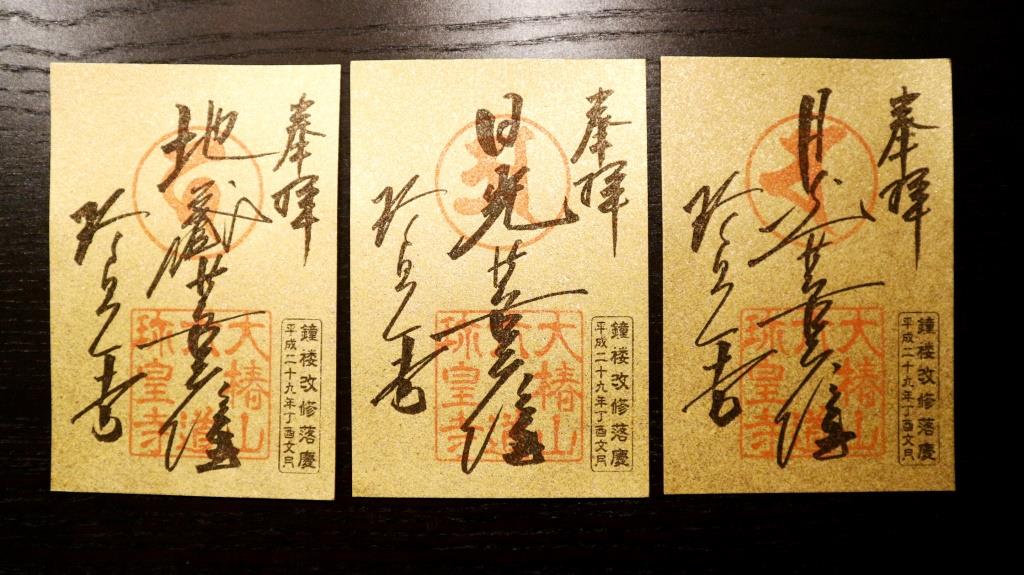 奉拝
地蔵菩薩
珎皇寺
大椿山
六道
珎皇寺
鐘楼改修落慶
平成二十九年丁酉文月
奉拝
日光菩薩
珎皇寺
大椿山
六道
珎皇寺
鐘楼改修落慶
平成二十九年丁酉文月
奉拝
月光菩薩
珎皇寺
大椿山
六道
珎皇寺
鐘楼改修落慶
平成二十九年丁酉文月